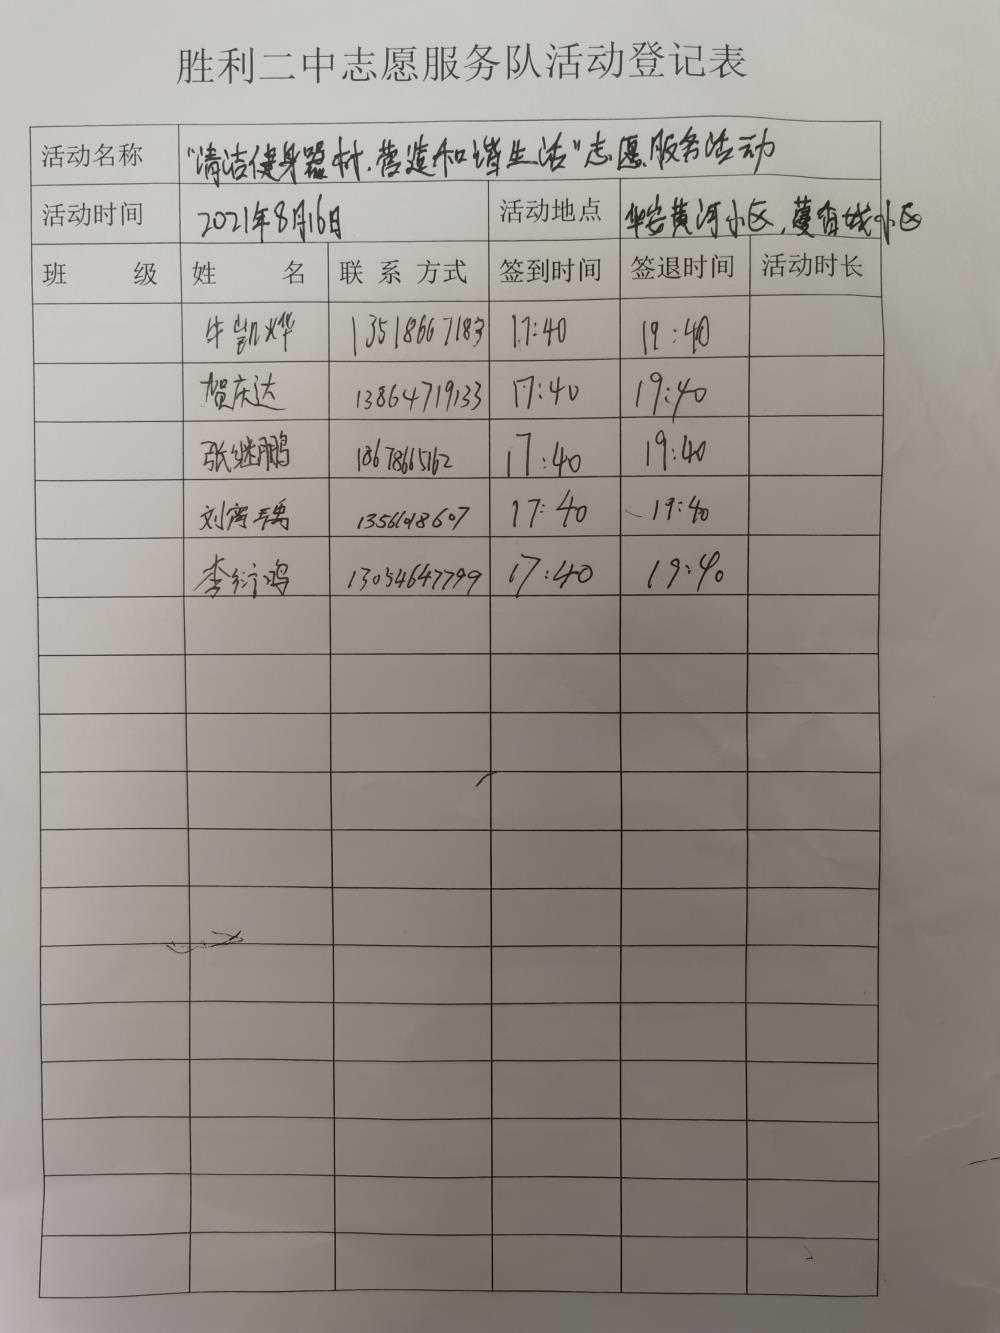 胜利二中志愿服务队活动登记表
活动名称 "清洁健身器材.营造和谐生活"志愿服务活动
活动时间 2021年8月16日 活动地点 华岩黄河小区,蔓香城小区
班 级 姓 名 联 系 方式 签到时间 签退时间 活动时长
牛凯烨 13518667183 17:40 19:40
贺庆达 13864719133 17:40 19:40
张继鹏 18678665162 17:40 19:40
刘 17:40 19:40
李衍鸿 13054647799 17:40 19:40